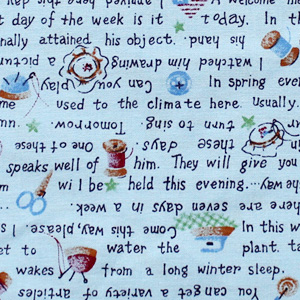 I arrived here this day
A welcome
t day of the week is it today. In th
nally attained his object. his hand.
I watched him drawing a picture
Can you play In spring eve
me used to the climate here. usually.
turn to sing. Tomorrow
these days. One of these
speaks well of him. They will give you
he way... seven days in a week.
m will be held this evening..
Come this way, please. I s
In this w
et to water the plant. ta
wakes from a long winter sleep.
You can get a variety of articles